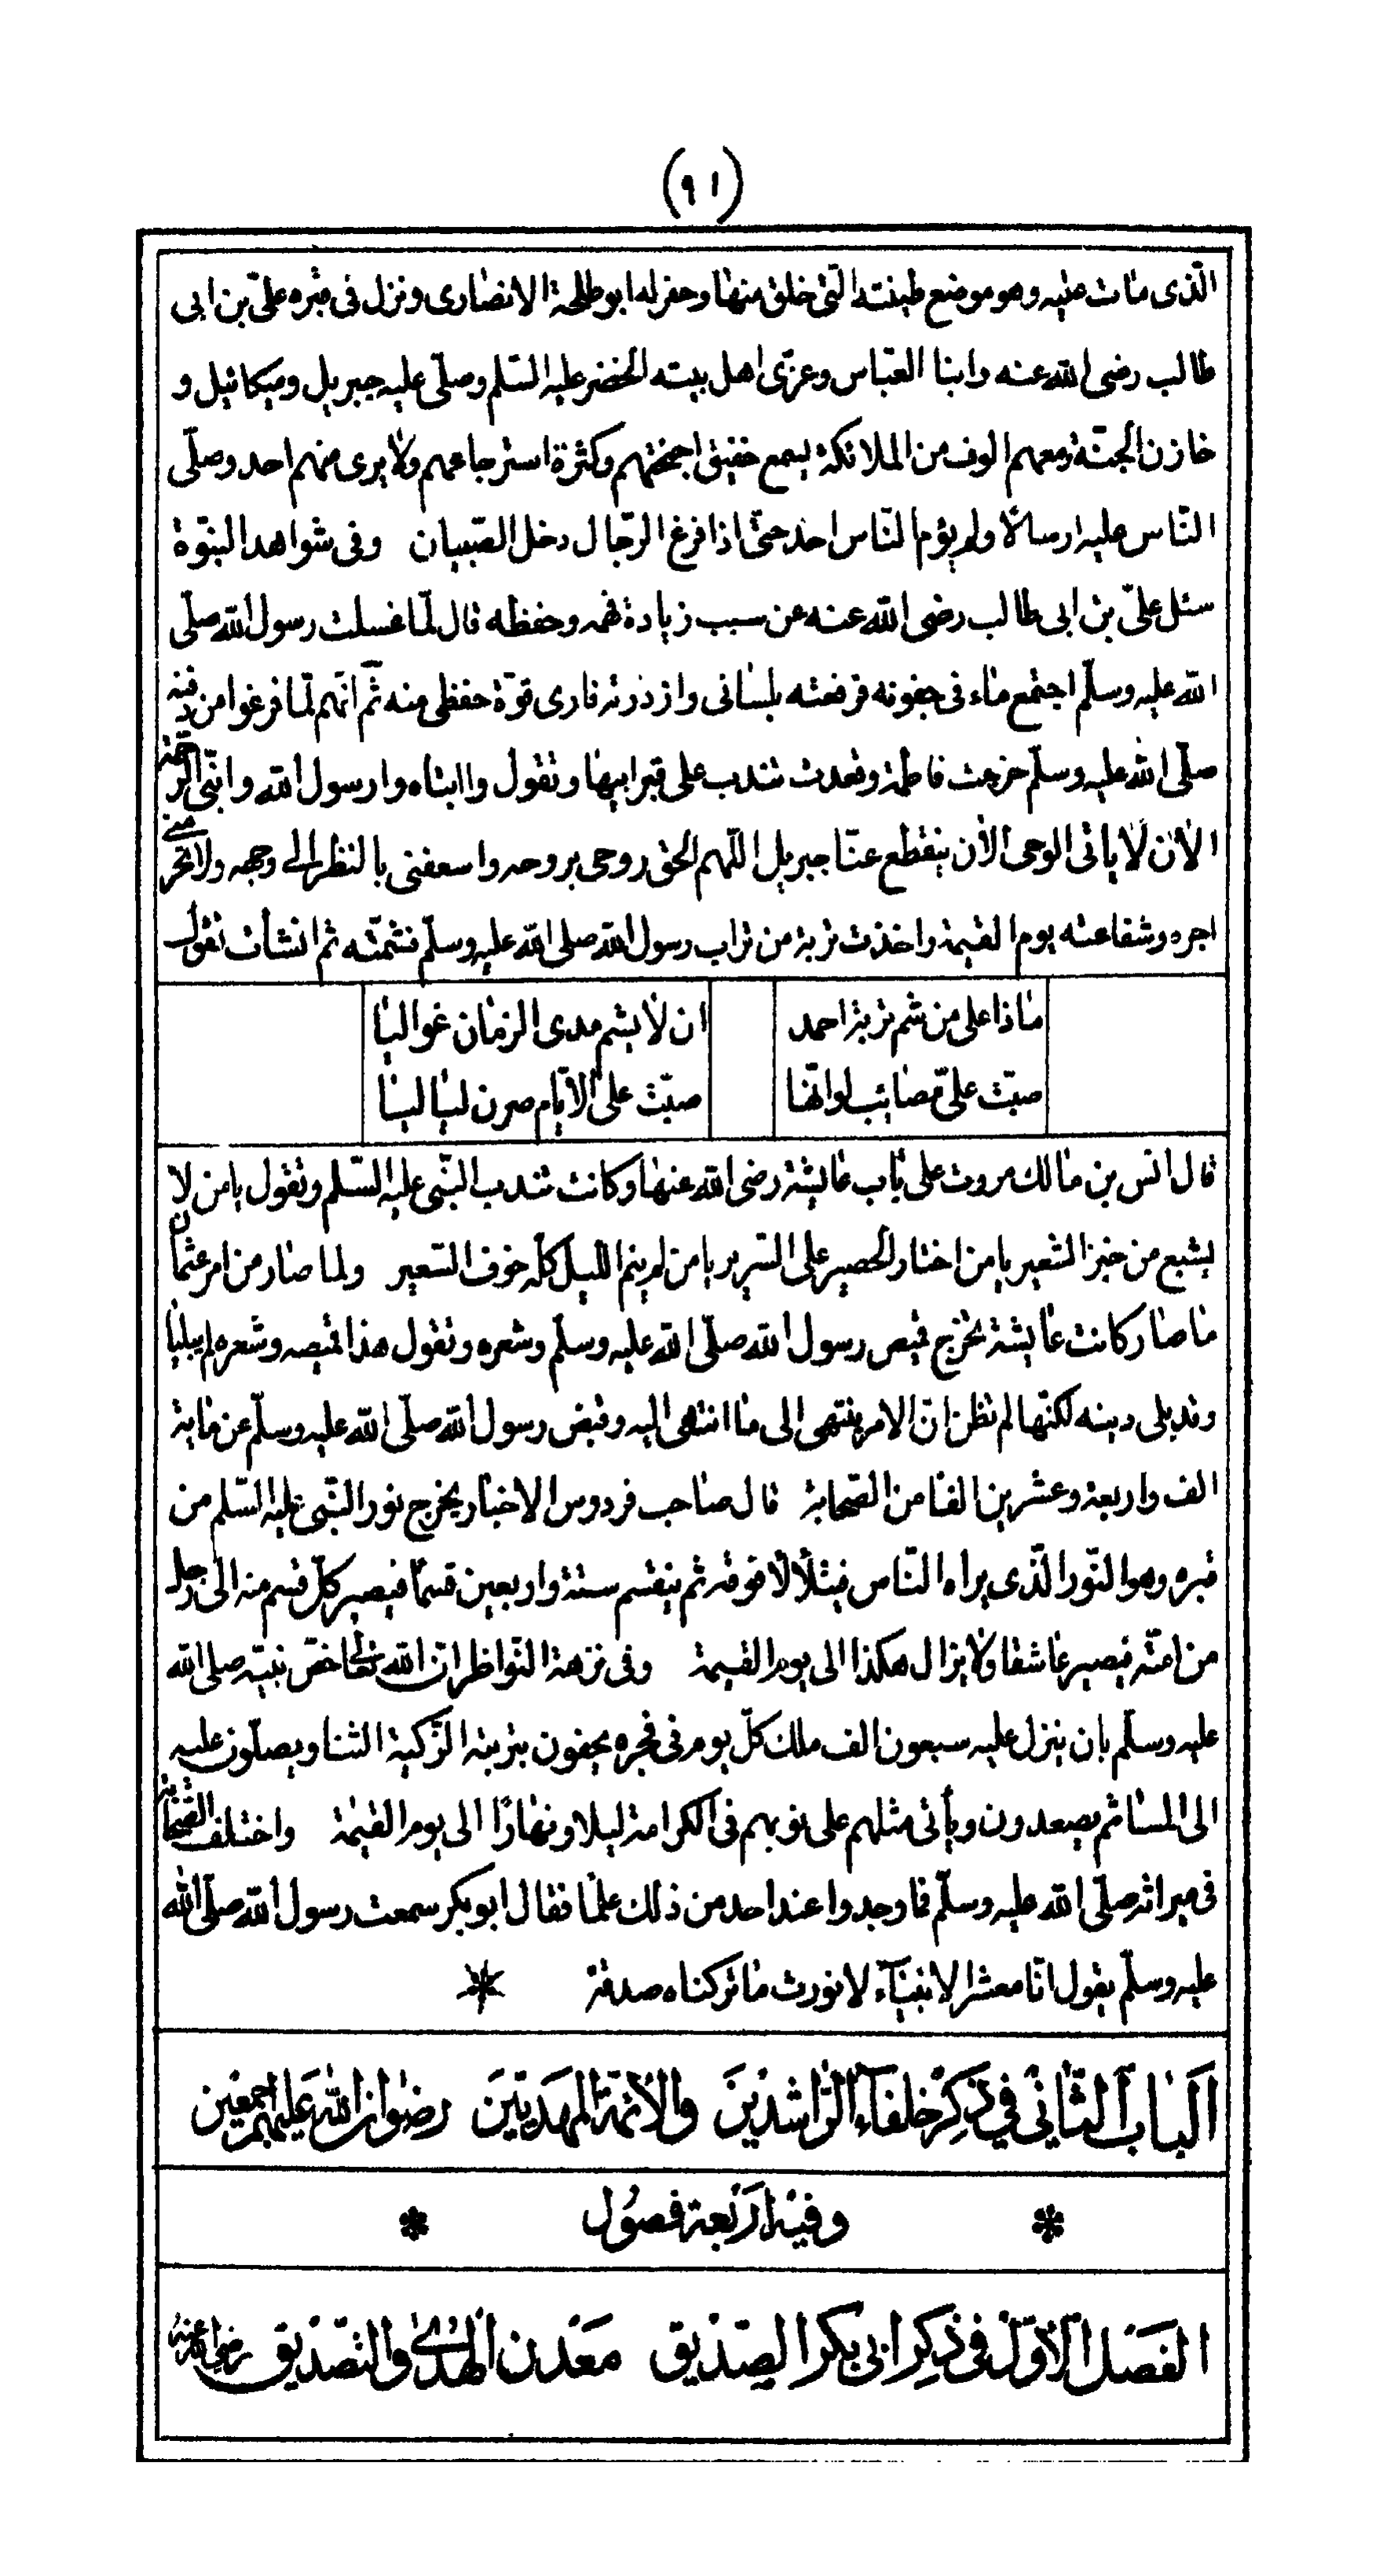 (٩١)
الّذى مات عليه وهو موضع طينته الّتى خلق منها وحفر له ابو طلحة الانصارى ونزل فى قبره علىّ بن ابى
طالب رضى الله عنه وابنا العبّاس وعزّى اهل بيته الخضر عليه السّلم وصلّى عليه جبريل وميكائيل و
خازن الجنّة ومعهم الوف من الملائكة يسمع خفيق اجنحتهم وكثرة استرجاعهم ولا يرى منهم احد وصلّى
النّاس عليه ارسالا ولم يؤم النّاس احد حتّى اذا فرغ الرّجال دخل الصّبيان وفى شواهد النبوّة
سئل علىّ بن ابى طالب رضى الله عنه عن سبب زيادة فهمه وحفظه قال لمّا غسلت رسول الله صلّى
الله عليه وسلّم اجتمع ماء فى جفونه فرفعته بلسانى وازدرته فارى قوّة حفظى منه ثمّ انّهم لمّا فرغوا من دفنه
صلّى الله عليه وسلّم خرجت فاطمة وقعدت تندب على قبر ابيها وتقول وا ابتاه وا رسول الله وا نبىّ الرّحمة
الآن لا ياتى الوحى الآن ينقطع عنّا جبريل اللّهم الحق روحى بروحه واسعفنى بالنظر الى وجهه ولا تحرمنى
اجره وشفاعته يوم القيمة واخذت تربة من تراب رسول الله صلى الله عليه وسلّم فشمّته ثم انشأت تقول
ماذا على من شم تربة احمد ان لا يشم مدى الزمان غواليا
صبّت علىّ مصائب لو انّها صبّت على الايّام صرن لياليا
قال انس بن مالك مررت على باب عايشة رضى الله عنها وكانت تندب النّبى عليه السّلم وتقول يا من لا
يشبع من خبز الشعير يا من اختار الحصير على السّرير يا من لم ينم الليل كلّه خوف السّعير ولما صار من امر عثمان
ما صار كانت عايشة تخرج قميص رسول الله صلّى الله عليه وسلّم وشعره وتقول هذا قميصه وشعره لم يبليا
وقد بلى دينه لكنّها لم تظن انّ الامر ينتهى الى ما انتهى اليه وقبض رسول الله صلّى الله عليه وسلّم عن ماية
الف واربعة وعشرين الفا من الصّحابة قال صاحب فردوس الاخبار يخرج نور النّبى عليه السّلم من
قبره وهو النّور الّذى يراه النّاس فيتلألأ فوقه ثم ينقسم ستة واربعين قسما فيصير كلّ قسم منه الى رجل
من امته فيصير عاشقا ولا يزال هكذا الى يوم القيمة وفى نزهة النّواظر انّ الله تعالى خصّ نبيّه صلى الله
عليه وسلّم بان ينزل عليه سبعون الف ملك كلّ يوم فى فجره يحفون بتربته الزّكية الثنا ويصلّون عليه
الى المسا ثم يصعدون ويأتى مثلهم على نوبهم فى الكرامة ليلا ونهارًا الى يوم القيمة واختلف الصّحابة
فى ميراثه صلّى الله عليه وسلّم فما وجدوا عند احد من ذلك علما فقال ابو بكر سمعت رسول الله صلّى الله
عليه وسلّم يقول انّا معشر الانبيآء لا نورث ما تركناه صدقة
اَلباب الثّانى فى ذكر خلفآء الرّاشدين والائمّة المهديّين رضوان الله عليهم اجمعين
وفيه اربعة فصول
الفصل الاوّل فى ذكر ابى بكر الصّديق معدن الهدى والتّصديق رضى الله عنه